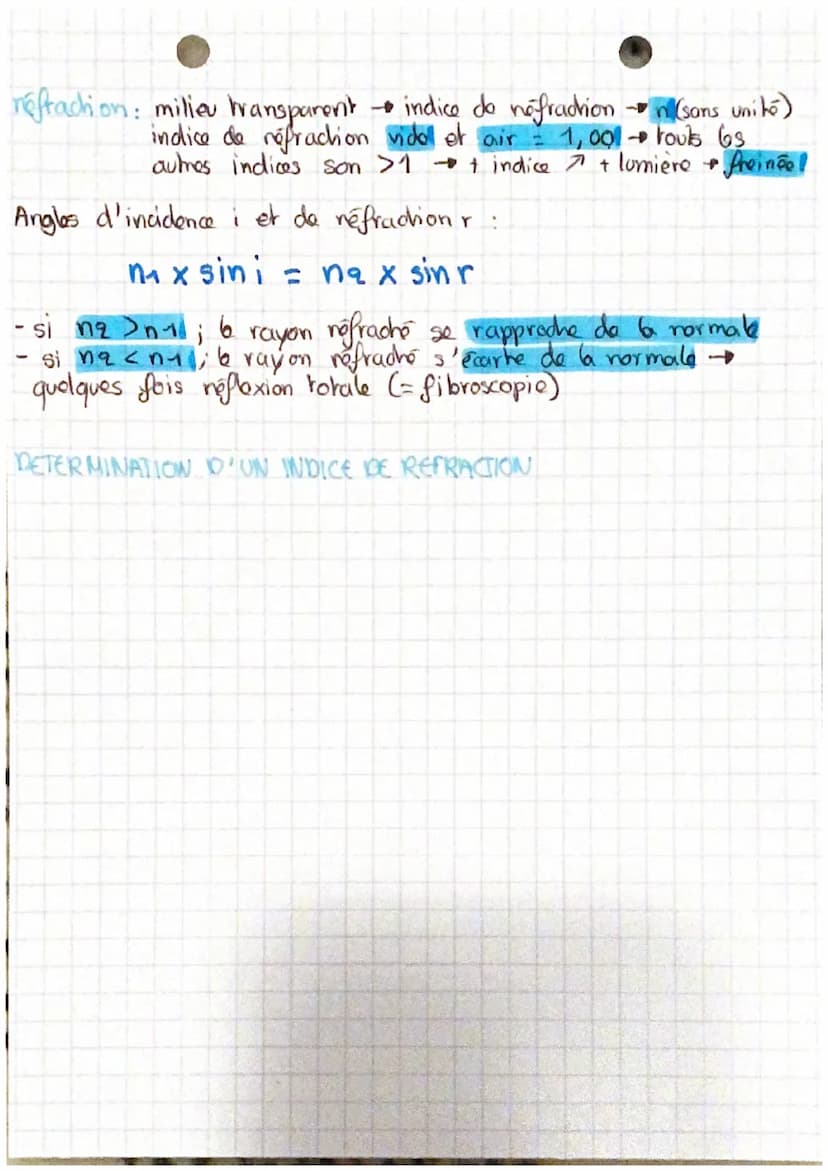 réfraction : milieu transparent → indice de réfraction → n (sans unité)
indice de réfraction vide et air = 1,00 → touts les
autres indices son >1 → + indice ↗ + lumière → freinée!
Angles d'incidence i et de réfraction r :
n1 x sin i = n2 x sin r
- si n2 > n1 ; le rayon réfracté se rapproche de la normale
- si n2 < n1 ; le rayon réfracté s'écarte de la normale →
quelques fois réflexion totale (= fibroscopie)
DETERMINATION D'UN INDICE DE REFRACTION